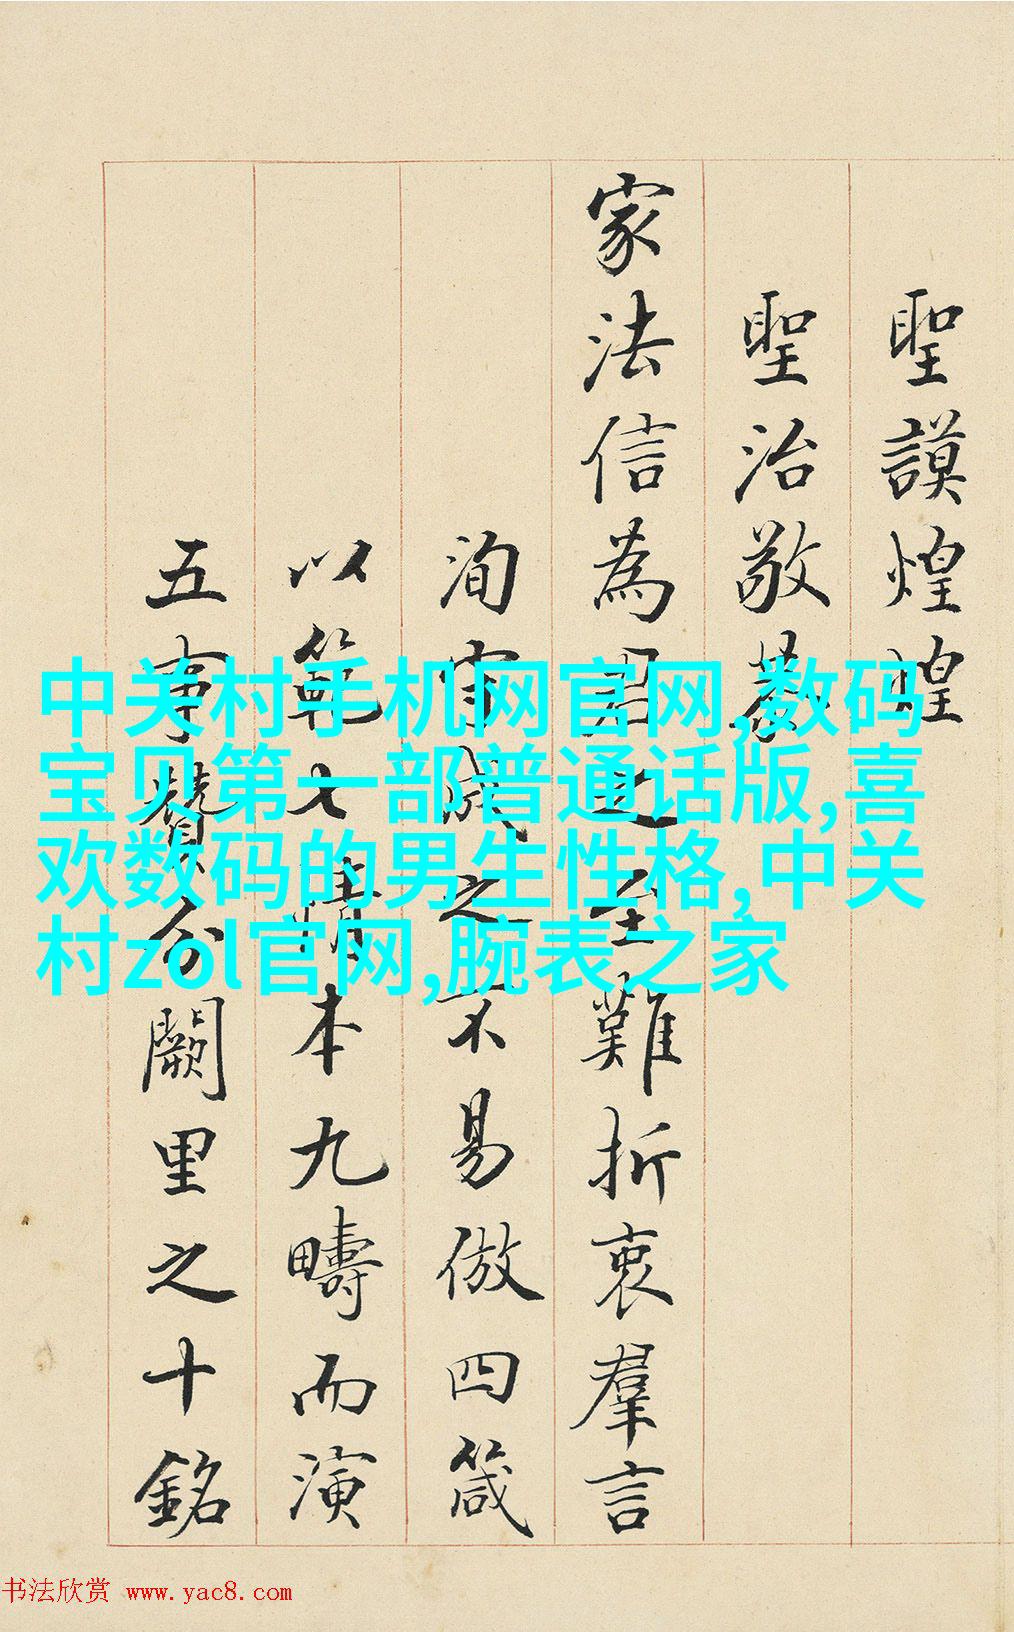 聖謨煌煌
聖治敬
家法信為君之至難折衷羣言
洵守成之不易倣四箴
以範七情本九疇而演
五事贊分闕里之十銘
中关村手机网官网,数码
宝贝第一部普通话版,喜
欢数码的男生性格,中关
村zol官网,腕表之家
书法欣赏 www.yac8.com